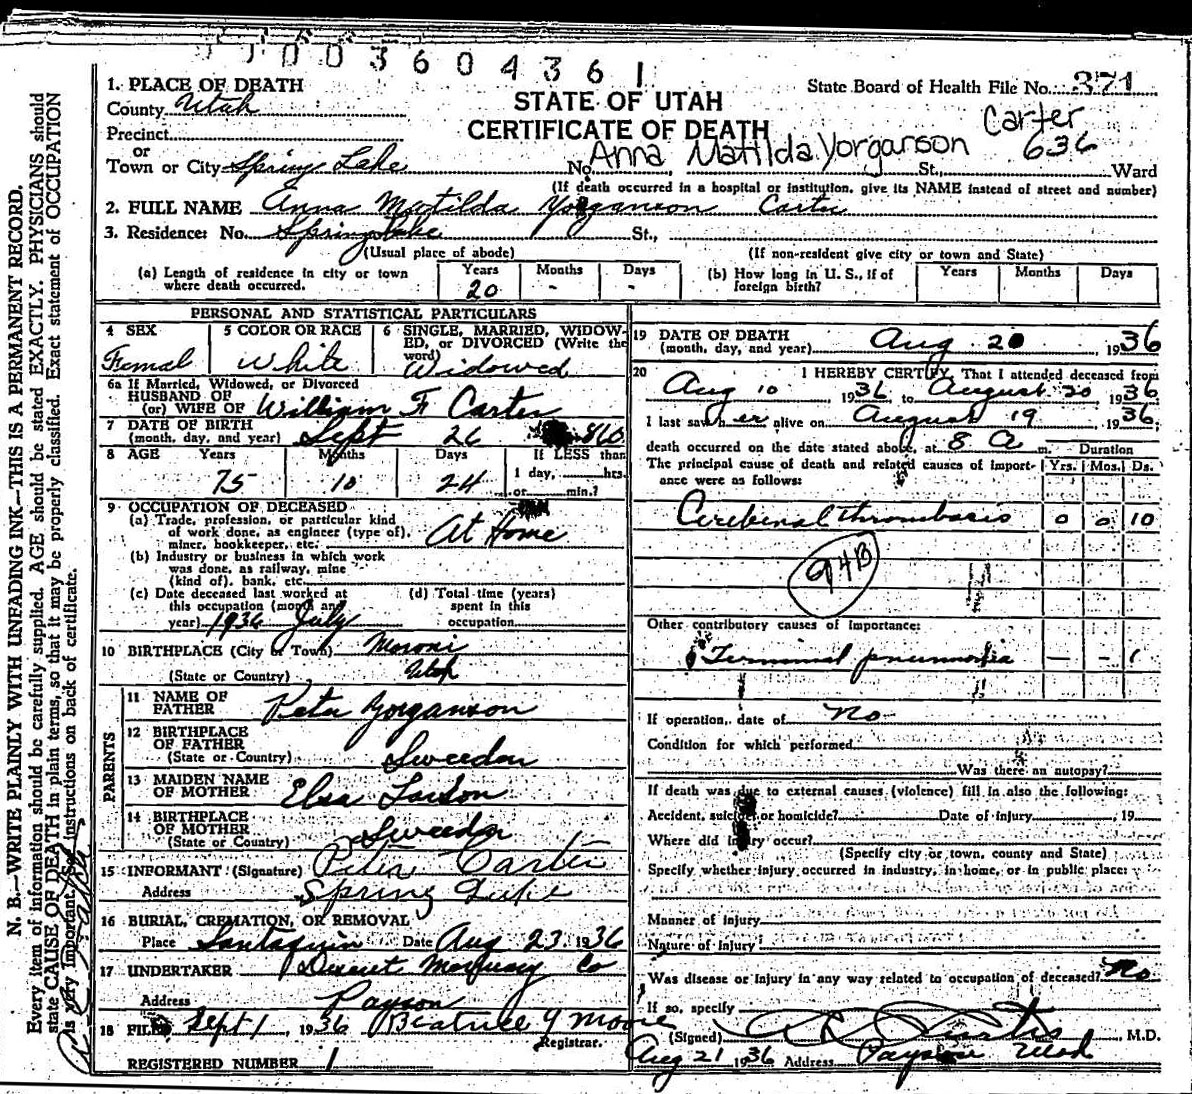 0003604361
1. PLACE OF DEATH
State Board of Health File No. 371
County Utah
STATE OF UTAH
CERTIFICATE OF DEATH
Carter
636
Precinct
or
Town or City Spring Lake No. Anna Matilda Yorganson St., Ward
(If death occurred in a hospital or institution, give its NAME instead of street and number)
2. FULL NAME Anna Matilda Yorganson Carter
3. Residence: No. Spring Lake St.,
(Usual place of abode) (If non-resident give city or town and State)
(a) Length of residence in city or town where death occurred. Years 20 Months - Days -
(b) How long in U. S., if of foreign birth? Years Months Days
PERSONAL AND STATISTICAL PARTICULARS
4 SEX Femal
5 COLOR OR RACE White
6 SINGLE, MARRIED, WIDOWED, or DIVORCED (Write the word) Widowed
6a If Married, Widowed, or Divorced
HUSBAND OF
(or) WIFE OF William F Carter
7 DATE OF BIRTH
(month, day, and year) Sept 26 1860
8 AGE Years Months Days If LESS than
75 10 24 1 day, hrs.
or min.?
9 OCCUPATION OF DECEASED
(a) Trade, profession, or particular kind
of work done, as engineer (type of),
miner, bookkeeper, etc. At Home
(b) Industry or business in which work
was done, as railway, mine
(kind of), bank, etc.
(c) Date deceased last worked at
this occupation (month and
year) 1936 July
(d) Total time (years)
spent in this
occupation
10 BIRTHPLACE (City or Town) Moroni
(State or Country) Utah
PARENTS
11 NAME OF
FATHER Peter Yorganson
12 BIRTHPLACE
OF FATHER
(State or Country) Sweedon
13 MAIDEN NAME
OF MOTHER Elsa Larson
14 BIRTHPLACE
OF MOTHER
(State or Country) Sweedon
15 INFORMANT (Signature) Peter Carter
Address Spring Lake
16 BURIAL, CREMATION, OR REMOVAL
Place Santaquin Date Aug 23 1936
17 UNDERTAKER Deseret Mortuary Co
Address Payson
18 FILED Sept 1, 1936 Beatrice Y Moore
Registrar.
REGISTERED NUMBER 1
19 DATE OF DEATH
(month, day, and year) Aug 20 1936
20 I HEREBY CERTIFY, That I attended deceased from
Aug 10 1936, to August 20 1936
I last saw her alive on August 19 1936;
death occurred on the date stated above, at 8 a m. Duration
The principal cause of death and related causes of importance were as follows: Yrs. Mos. Ds.
Cerebenal thrombosis 0 0 10
94B
Other contributory causes of importance:
Terminal pneumonia — - 1
If operation, date of no
Condition for which performed
Was there an autopsy?
If death was due to external causes (violence) fill in also the following:
Accident, suicide, or homicide? Date of injury , 19
Where did injury occur?
(Specify city or town, county and State)
Specify whether injury occurred in industry, in home, or in public place:
Manner of injury
Nature of injury
Was disease or injury in any way related to occupation of deceased? No
If so, specify
(Signed) Curtis, M.D.
Aug 21 1936 Address Payson Utah
N. B.—WRITE PLAINLY WITH UNFADING INK—THIS IS A PERMANENT RECORD.
Every item of information should be carefully supplied. AGE should be stated EXACTLY. PHYSICIANS should
state CAUSE OF DEATH in plain terms, so that it may be properly classified. Exact statement of OCCUPATION
is very important. See instructions on back of certificate.